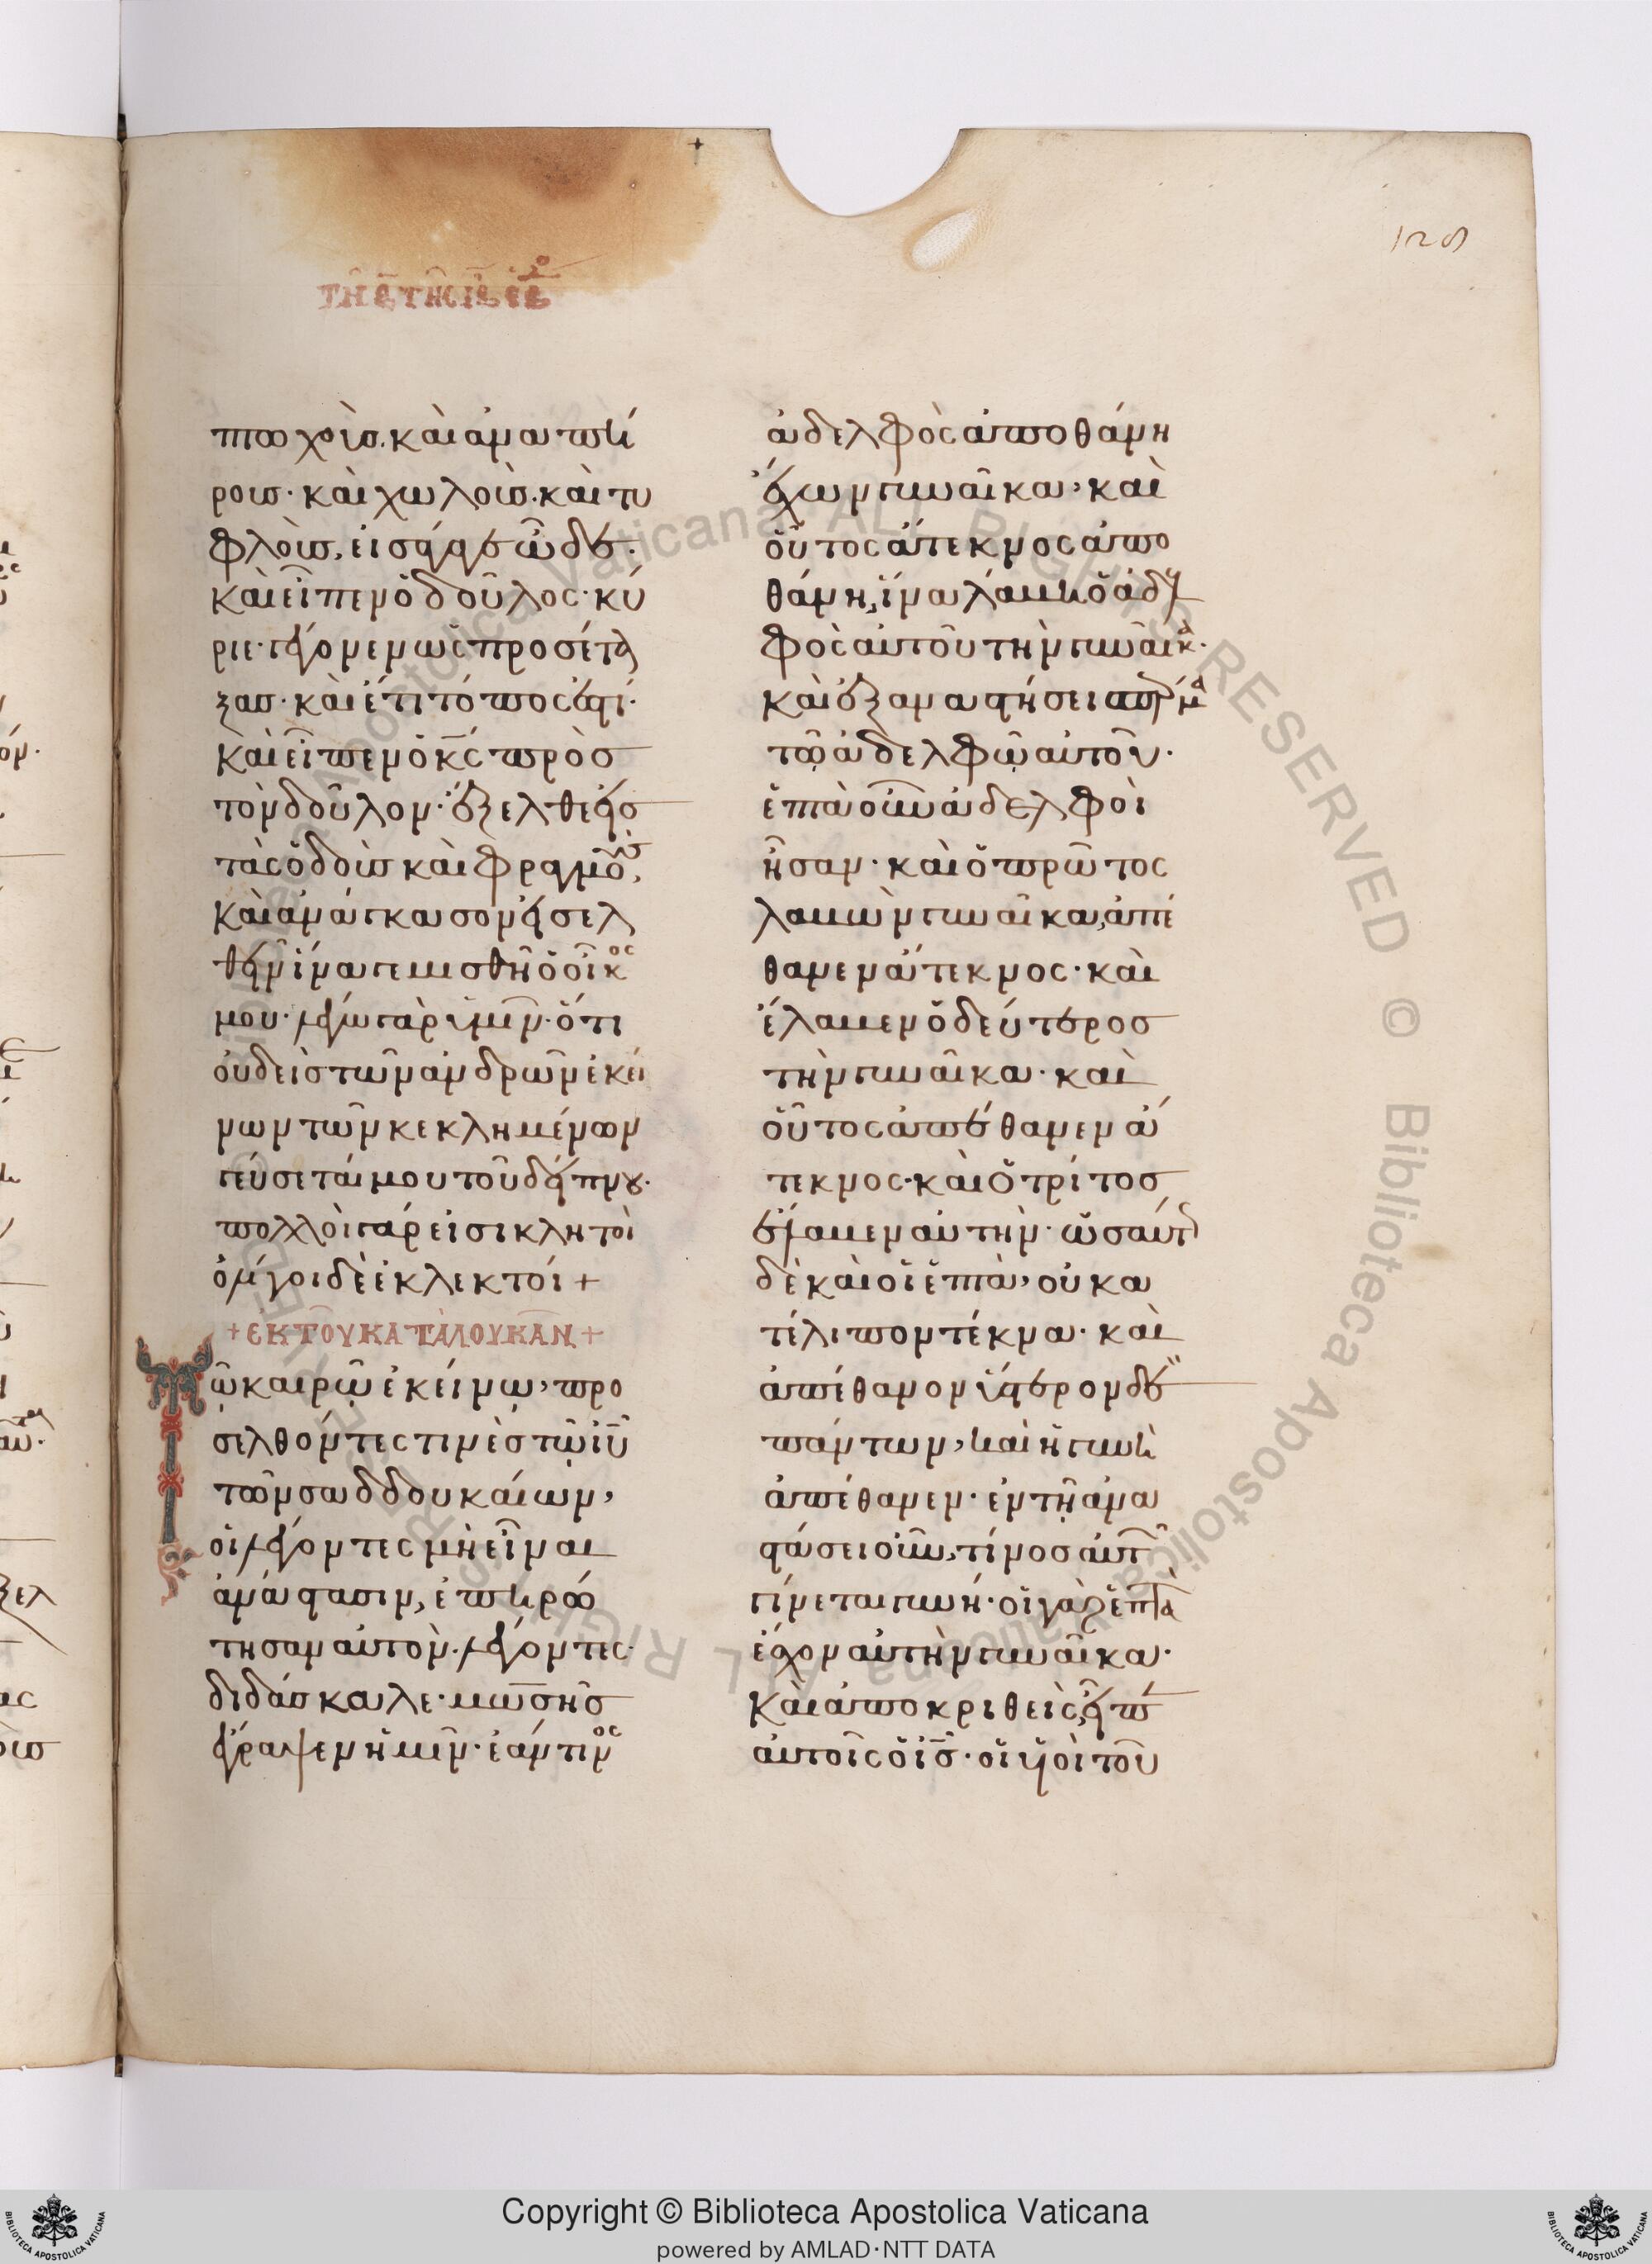 128
τῇ β τῆς ιβ ἑβδ
πτωχοὺς. καὶ ἀναπή
ρους· καὶ χωλοὺς. καὶ τυ
φλοὺς, εἰσάγαγε ὧδε·
καὶ εἶπεν ὁ δοῦλος· κύ
ριε· γέγονεν ὡς προσέτα
ξας· καὶ ἔτι τόπος ἐστί·
καὶ εἶπεν ὁ κς πρὸς
τὸν δοῦλον· ἔξελθε εἰς
τὰς ὁδοὺς καὶ φραγμοὺς,
καὶ ἀνάγκασον εἰσελ
θεῖν ἵνα γεμισθῆ ὁ οἶκος
μου· λέγω γὰρ ὑμῖν· ὅτι
οὐδεὶς τῶν ἀνδρῶν ἐκεί
νων τῶν κεκλημένων
γεύσεταί μου τοῦ δείπνου·
πολλοὶ γάρ εἰσι κλητοὶ
ὀλίγοι δὲ ἐκλεκτοί +
+ ἐκ τοῦ κατὰ λουκᾶν +
Τῶ καιρῶ ἐκείνω, προ
σελθόντες τινὲς τῶ ιυ
τῶν σαδδουκαίων,
οἱ λέγοντες μὴ εἶναι
ἀνάστασιν, ἐπηρώ
τησαν αὐτὸν. λέγοντες·
διδάσκαλε· μωσῆς
ἔγραψεν ἡμῖν· ἐάν τινος
ἀδελφὸς ἀποθάνη
ἔχων γυναῖκα, καὶ
οὗτος ἄτεκνος ἀπο
θάνη, ἵνα λάβη ὁ ἀδελ
φὸς αὐτοῦ τὴν γυναῖκα·
καὶ ἐξαναστήσει σπέρμα
τῶ ἀδελφῶ αὐτοῦ·
ἑπτὰ οὖν ἀδελφοὶ
ἦσαν· καὶ ὁ πρῶτος
λαβὼν γυναῖκα, ἀπέ
θανεν ἄτεκνος· καὶ
ἔλαβεν ὁ δεύτερος
τὴν γυναῖκα· καὶ
οὗτος ἀπέθανεν ἄ
τεκνος· καὶ ὁ τρίτος
ἔλαβεν αὐτὴν· ὡσαύτως
δὲ καὶ οἱ ἑπτὰ, οὐ κα
τέλιπον τέκνα· καὶ
ἀπέθανον ὕστερον δὲ
πάντων, καὶ ἡ γυνὴ
ἀπέθανεν· ἐν τῆ ἀνα
στάσει οὖν, τίνος αὐτῶν
γίνεται γυνή· οἱ γὰρ ἑπτὰ
ἔσχον αὐτὴν γυναῖκα·
καὶ ἀποκριθεὶς, εἶπεν
αὐτοῖς ὁ ις· οἱ υἱοὶ τοῦ
Copyright © Biblioteca Apostolica Vaticana
powered by AMLAD·NTT DATA